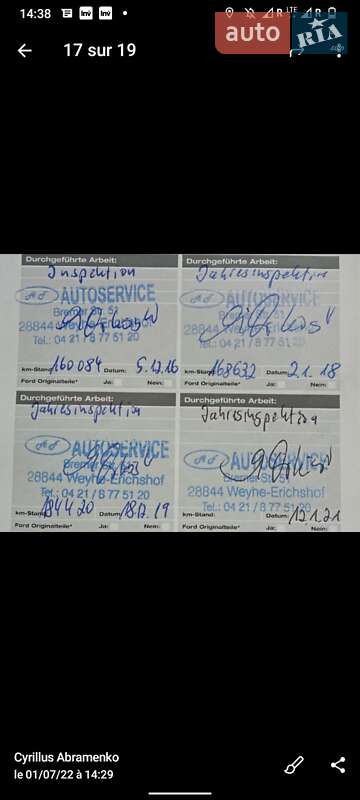 14:38
LTE
R
R
17 sur 19
auto
RIA
.com
Durchgeführte Arbeit:
Inspektion
AUTOSERVICE
Bremer Str. 51
28844 Weyhe-Erichshof
Tel.: 04 21 / 8 77 51 20
km-Stand: 160 084 Datum: 5.12.16
Ford Originalteile* Ja: Nein:
Durchgeführte Arbeit:
Jahresinspektion
AUTOSERVICE
Bremer Str. 51
28844 Weyhe-Erichshof
Tel.: 04 21 / 8 77 51 20
km-Stand: 168632 Datum: 2.1.18
Ford Originalteile* Ja: Nein:
Durchgeführte Arbeit:
Jahresinspektion
AUTOSERVICE
Bremer Str. 51
28844 Weyhe-Erichshof
Tel.: 04 21 / 8 77 51 20
km-Stand: 184420 Datum:
Ford Originalteile* Ja: Nein:
Durchgeführte Arbeit:
Jahresinspektion
AUTOSERVICE
Bremer Str. 51
28844 Weyhe-Erichshof
Tel.: 04 21 / 8 77 51 20
km-Stand: Datum: 12.1.21
Ford Originalteile* Ja: Nein:
Cyrillus Abramenko
le 01/07/22 à 14:29